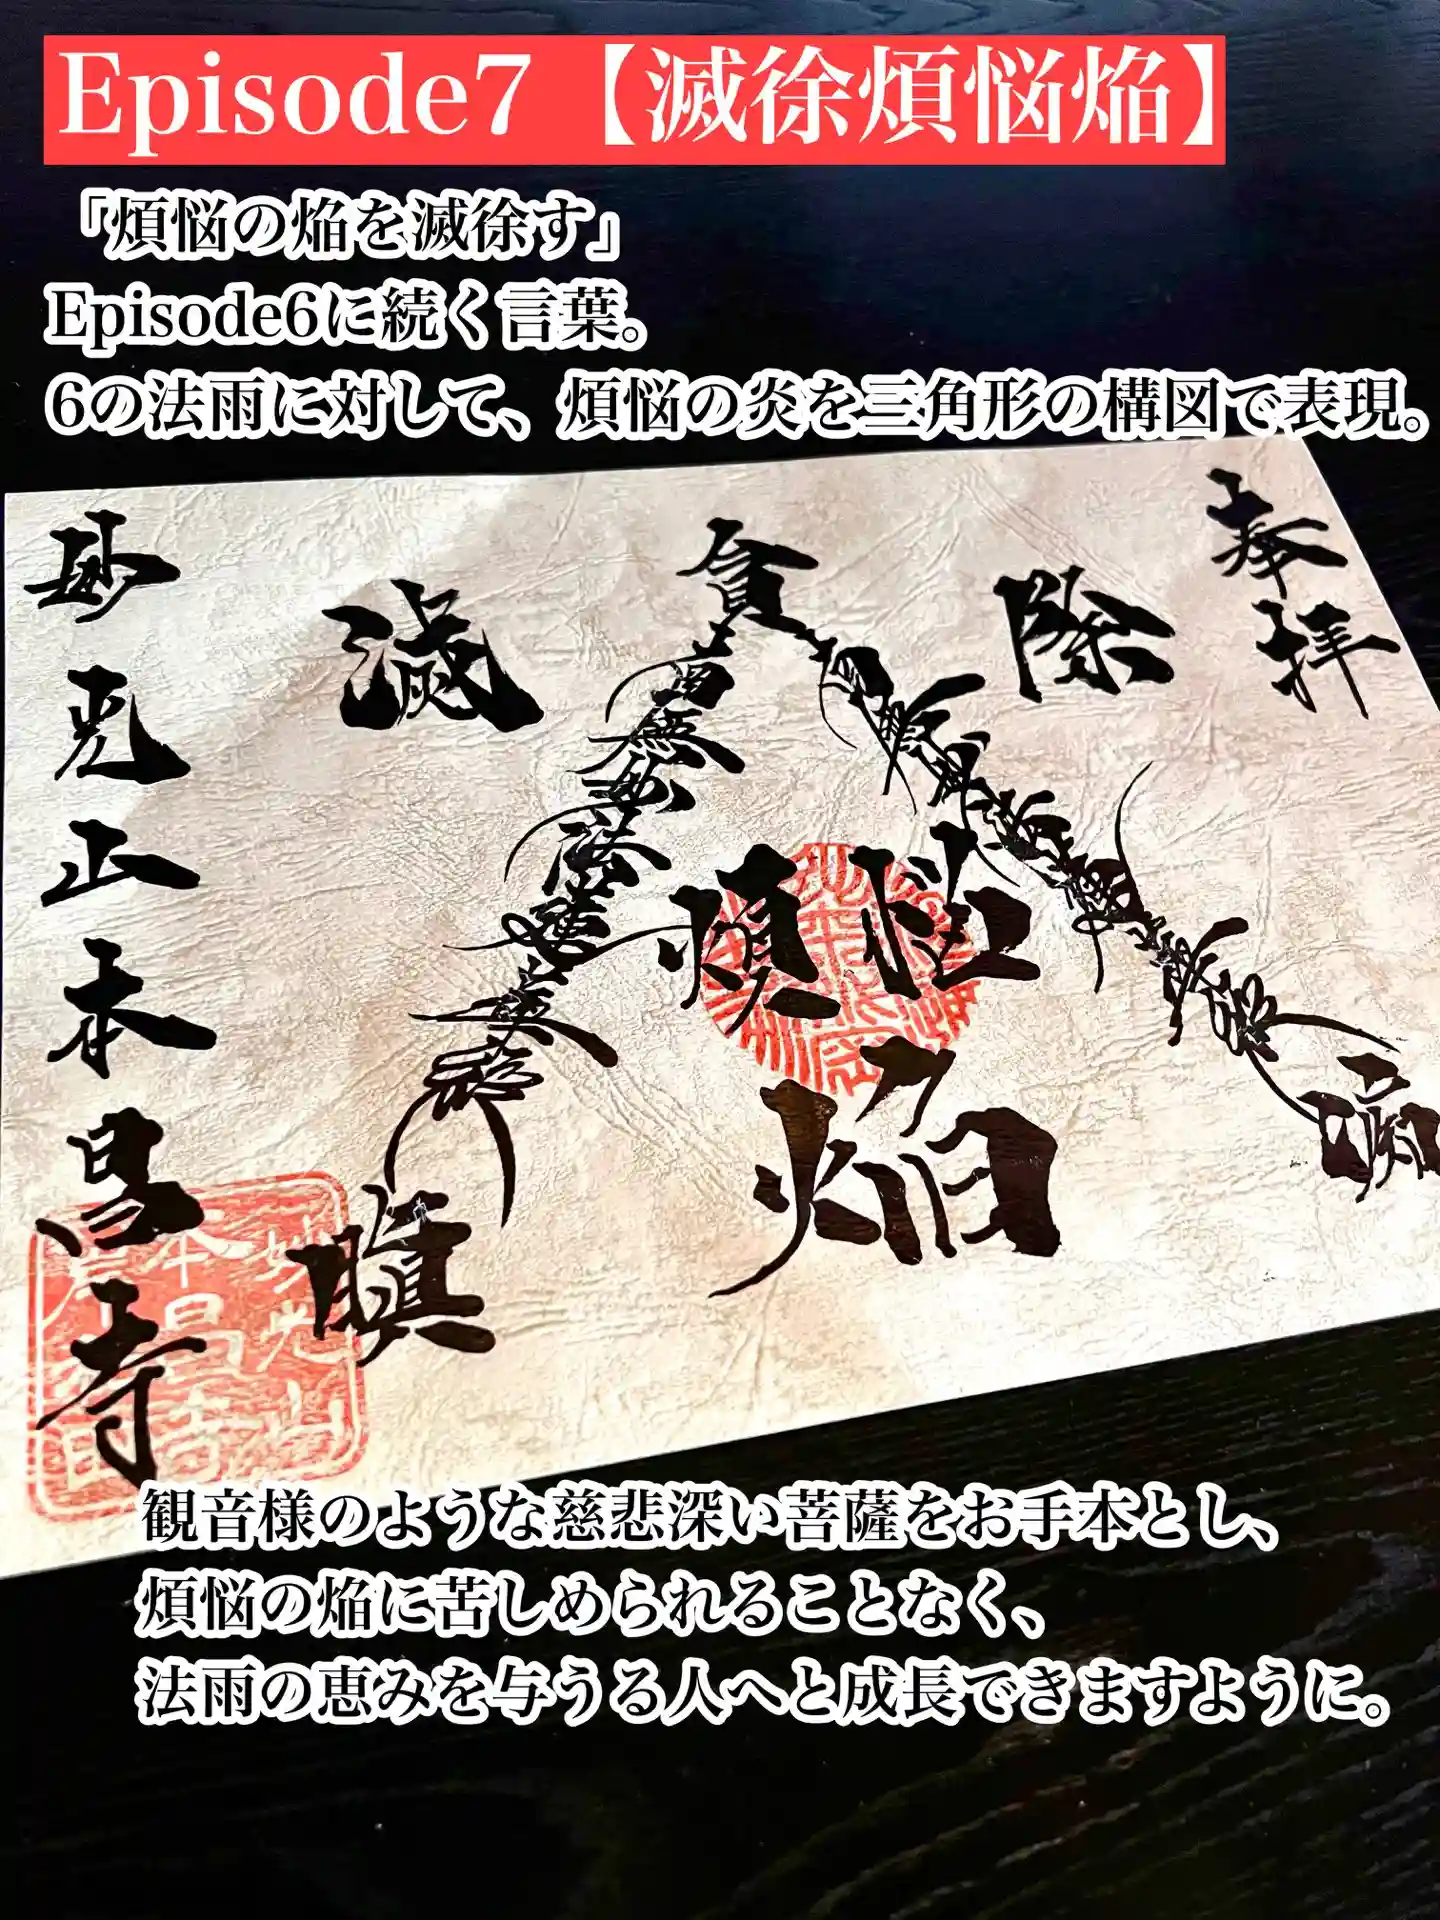 Episode7【滅徐煩悩焔】
「煩悩の焔を滅徐す」
Episode6に続く言葉。
6の法雨に対して、煩悩の炎を三角形の構図で表現。
奉拝
滅
除
煩悩
焔
貪
瞋
南無妙法蓮華経
妙光山本昌寺
妙光山
本昌寺
観音様のような慈悲深い菩薩をお手本とし、
煩悩の焔に苦しめられることなく、
法雨の恵みを与うる人へと成長できますように。